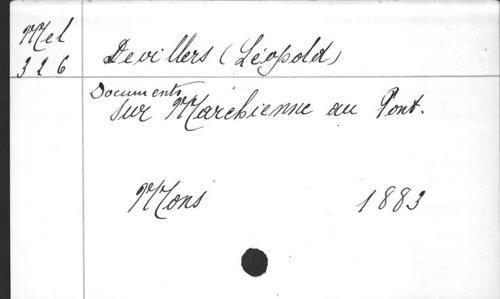 Mel
326
Devillers (Léopold)
Documents
sur Marchienne au Pont.
Mons 1883